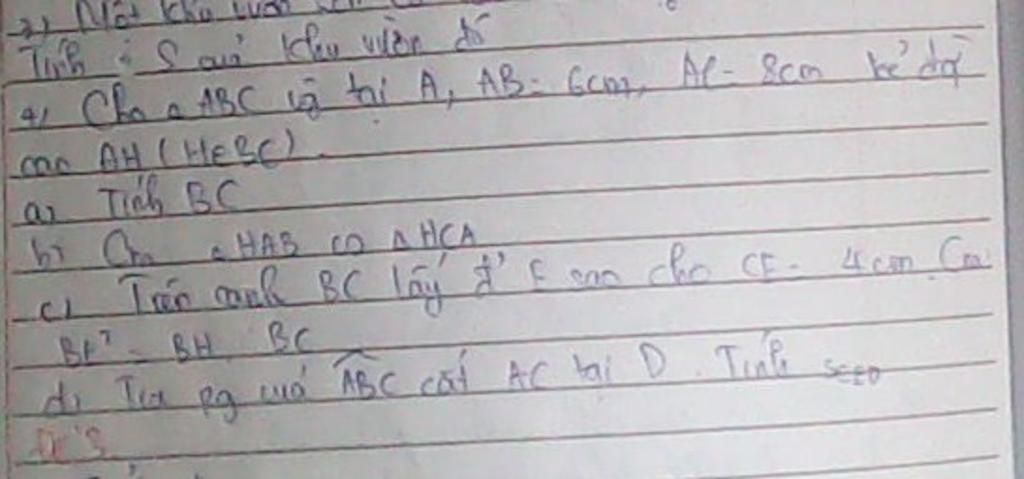 3) Một khu vườn
Tính : S cuả khu vườn đó
4) Cho △ABC vg tại A, AB = 6cm, AC = 8cm kẻ đg
cao AH (H∈BC).
a) Tính BC
b) Cm △HAB ∽ △HCA
c) Trên cạnh BC lấy đ' E sao cho CE = 4cm. Cm
BE² = BH. BC
d) Tia pg cuả ABC cắt AC tại D. Tính SCED